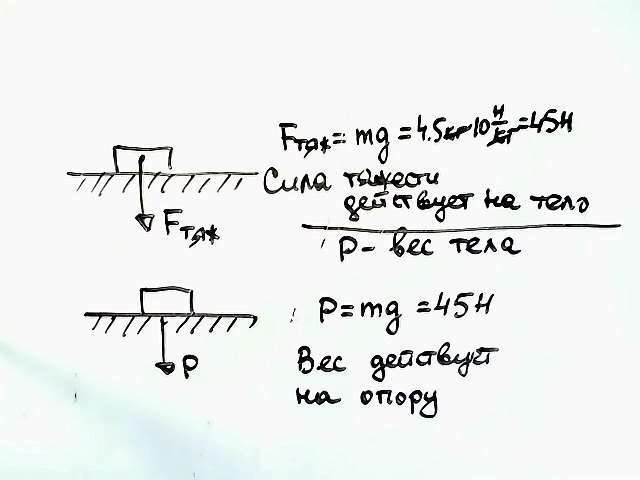 Fтяж = mg = 4.5кг·10 Н/кг = 45Н
Сила тяжести
действует на тело
Fтяж
P - вес тела
P = mg = 45Н
P
Вес действует
на опору